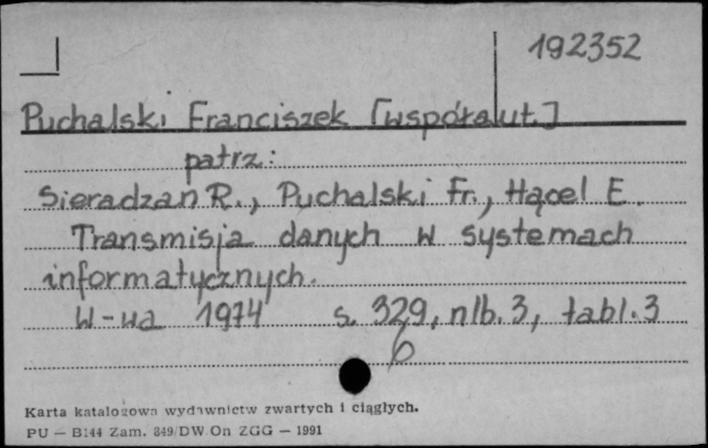 192352
Puchalski Franciszek [współaut.]
patrz:
Sieradzan R., Puchalski Fr., Hącel E.
Transmisja danych w systemach
informatycznych.
W-wa 1974 s. 329, nlb. 3, tabl. 3
6
Karta katalogowa wydawnictw zwartych i ciągłych.
PU — B144 Zam. 849/DW On ZGG — 1991